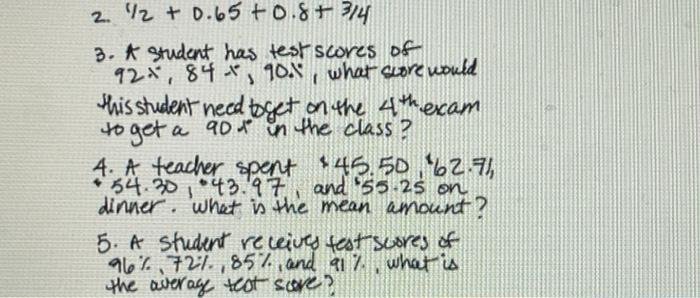 2. 1/2 + 0.65 + 0.8 + 3/4
3. A student has test scores of
92%, 84%, 90%, what score would
this student need to get on the 4th exam
to get a 90% in the class?
4. A teacher spent $45.50, $62.71,
$54.30, $43.97, and $55.25 on
dinner. What is the mean amount?
5. A student receives test scores of
96%, 72%, 85%, and 91%, what is
the average test score?